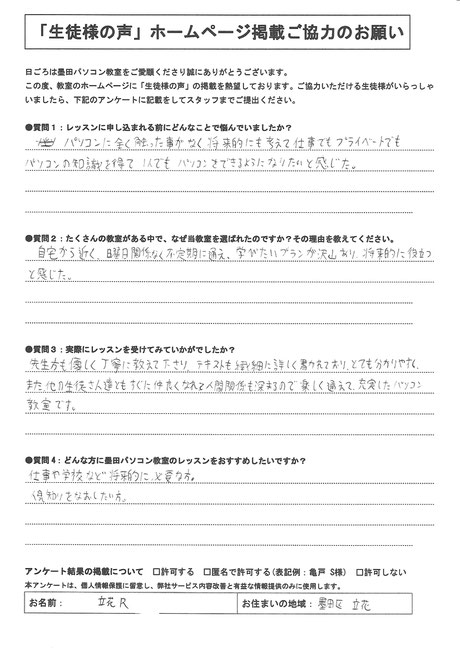 「生徒様の声」ホームページ掲載ご協力のお願い
日ごろは墨田パソコン教室をご愛顧くださり誠にありがとうございます。
この度、教室のホームページに「生徒様の声」の掲載を熱望しております。ご協力いただける生徒様がいらっしゃ
いましたら、下記のアンケートに記載をしてスタッフまでご提出ください。
●質問1：レッスンに申し込まれる前にどんなことで悩んでいましたか？
パソコンに全く触った事がなく将来的にも考えて仕事でもプライベートでも
パソコンの知識を得て1人でもパソコンをできるようになりたいと感じた。
●質問2：たくさんの教室がある中で、なぜ当教室を選ばれたのですか？その理由を教えてください。
自宅から近く、日曜日関係なく不定期に通え、学びたいプランが沢山あり、将来的に役立つ
と感じた。
●質問3：実際にレッスンを受けてみていかがでしたか？
先生方も優しく丁寧に教えて下さり、テキストも繊細に詳しく書かれており、とても分かりやすく、
また他の生徒さん達ともすぐに仲良くなれて人間関係も深まるので楽しく通えて、充実したパソコン
教室です。
●質問4：どんな方に墨田パソコン教室のレッスンをおすすめしたいですか？
仕事や学校など将来的に必要な方。
人見知りをなおしたい方。
アンケート結果の掲載について　□許可する　□匿名で許可する（表記例：亀戸 S様）　□許可しない
本アンケートは、個人情報保護に留意し、弊社サービス内容改善と有益な情報提供のみに使用します。
お名前：　立花 R　お住まいの地域：墨田区 立花